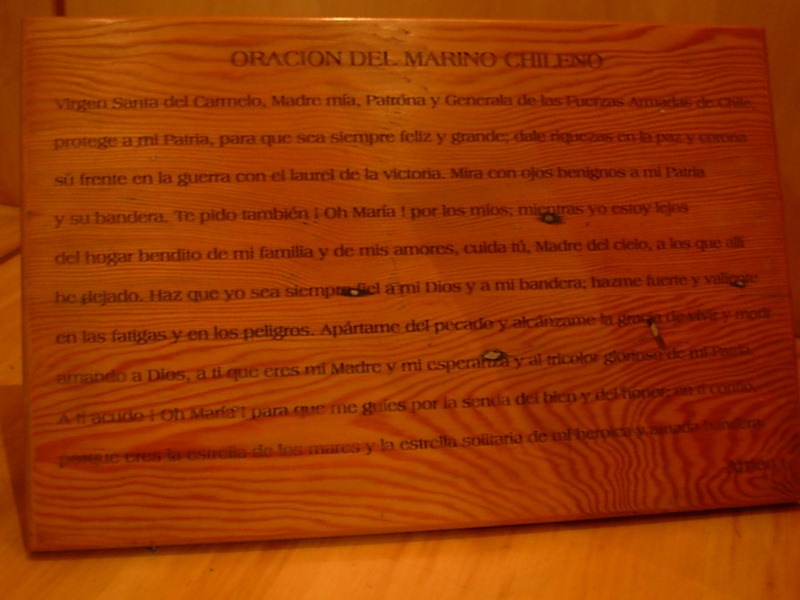 ORACION DEL MARINO CHILENO
Virgen Santa del Carmelo, Madre mía, Patróna y Generala de las Fuerzas Armadas de Chile,
protege a mi Patria, para que sea siempre feliz y grande; dale riquezas en la paz y corona
sú frente en la guerra con el laurel de la victoria. Mira con ojos benignos a mi Patria
y su bandera. Te pido también ¡ Oh María ! por los míos; mientras yo estoy lejos
del hogar bendito de mi familia y de mis amores, cuida tú, Madre del cielo, a los que allí
he dejado. Haz que yo sea siempre fiel a mi Dios y a mi bandera; hazme fuerte y valiente
en las fatigas y en los peligros. Apártame del pecado y alcánzame la gracia de vivir y morir
amando a Dios, a ti que eres mi Madre y mi esperanza y al tricolor glorioso de mi Patria.
A ti acudo ¡ Oh María ! para que me guíes por la senda del bien y del honor; en ti confío,
porque eres la estrella de los mares y la estrella solitaria de mi heroica y amada bandera.
Amén